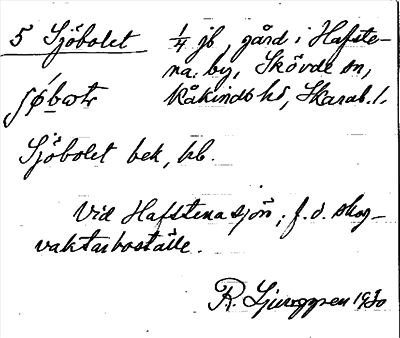 5 Sjöbolet ¼ jb, gård i Hafste-
na by, Skövde sn,
ʃǿbωtr Kåkinds hd, Skarab. l.
Sjöbolet bek, hb.
Vid Hafstenasjön; f. d. skog-
vaktarboställe.
R. Ljunggren 1930